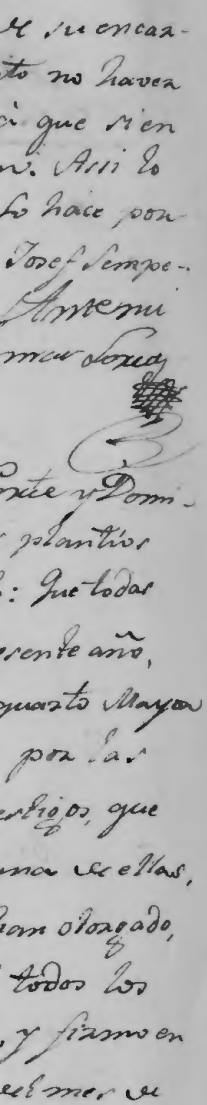 de su encar-
to no haver
à que sien
n. Assi lo
lo hace por
Josef Sempe-
Antemi
Loxca
Corte y Domi-
s plantíos
: Que todas
esente año,
quarto Mayor
por las
estigos, que
una de ellas,
han otorgado,
todos los
, y firmo en
del mes de